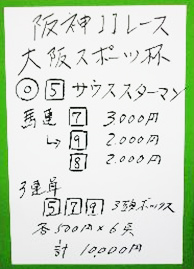 阪神11レース
大阪スポーツ杯
◎ 5 サウススターマン
馬連 7 3000円
↳ 9 2.000円
8 2.000円
3連単
5 7 9 3頭ボックス
各500円×6点
計 10,000円